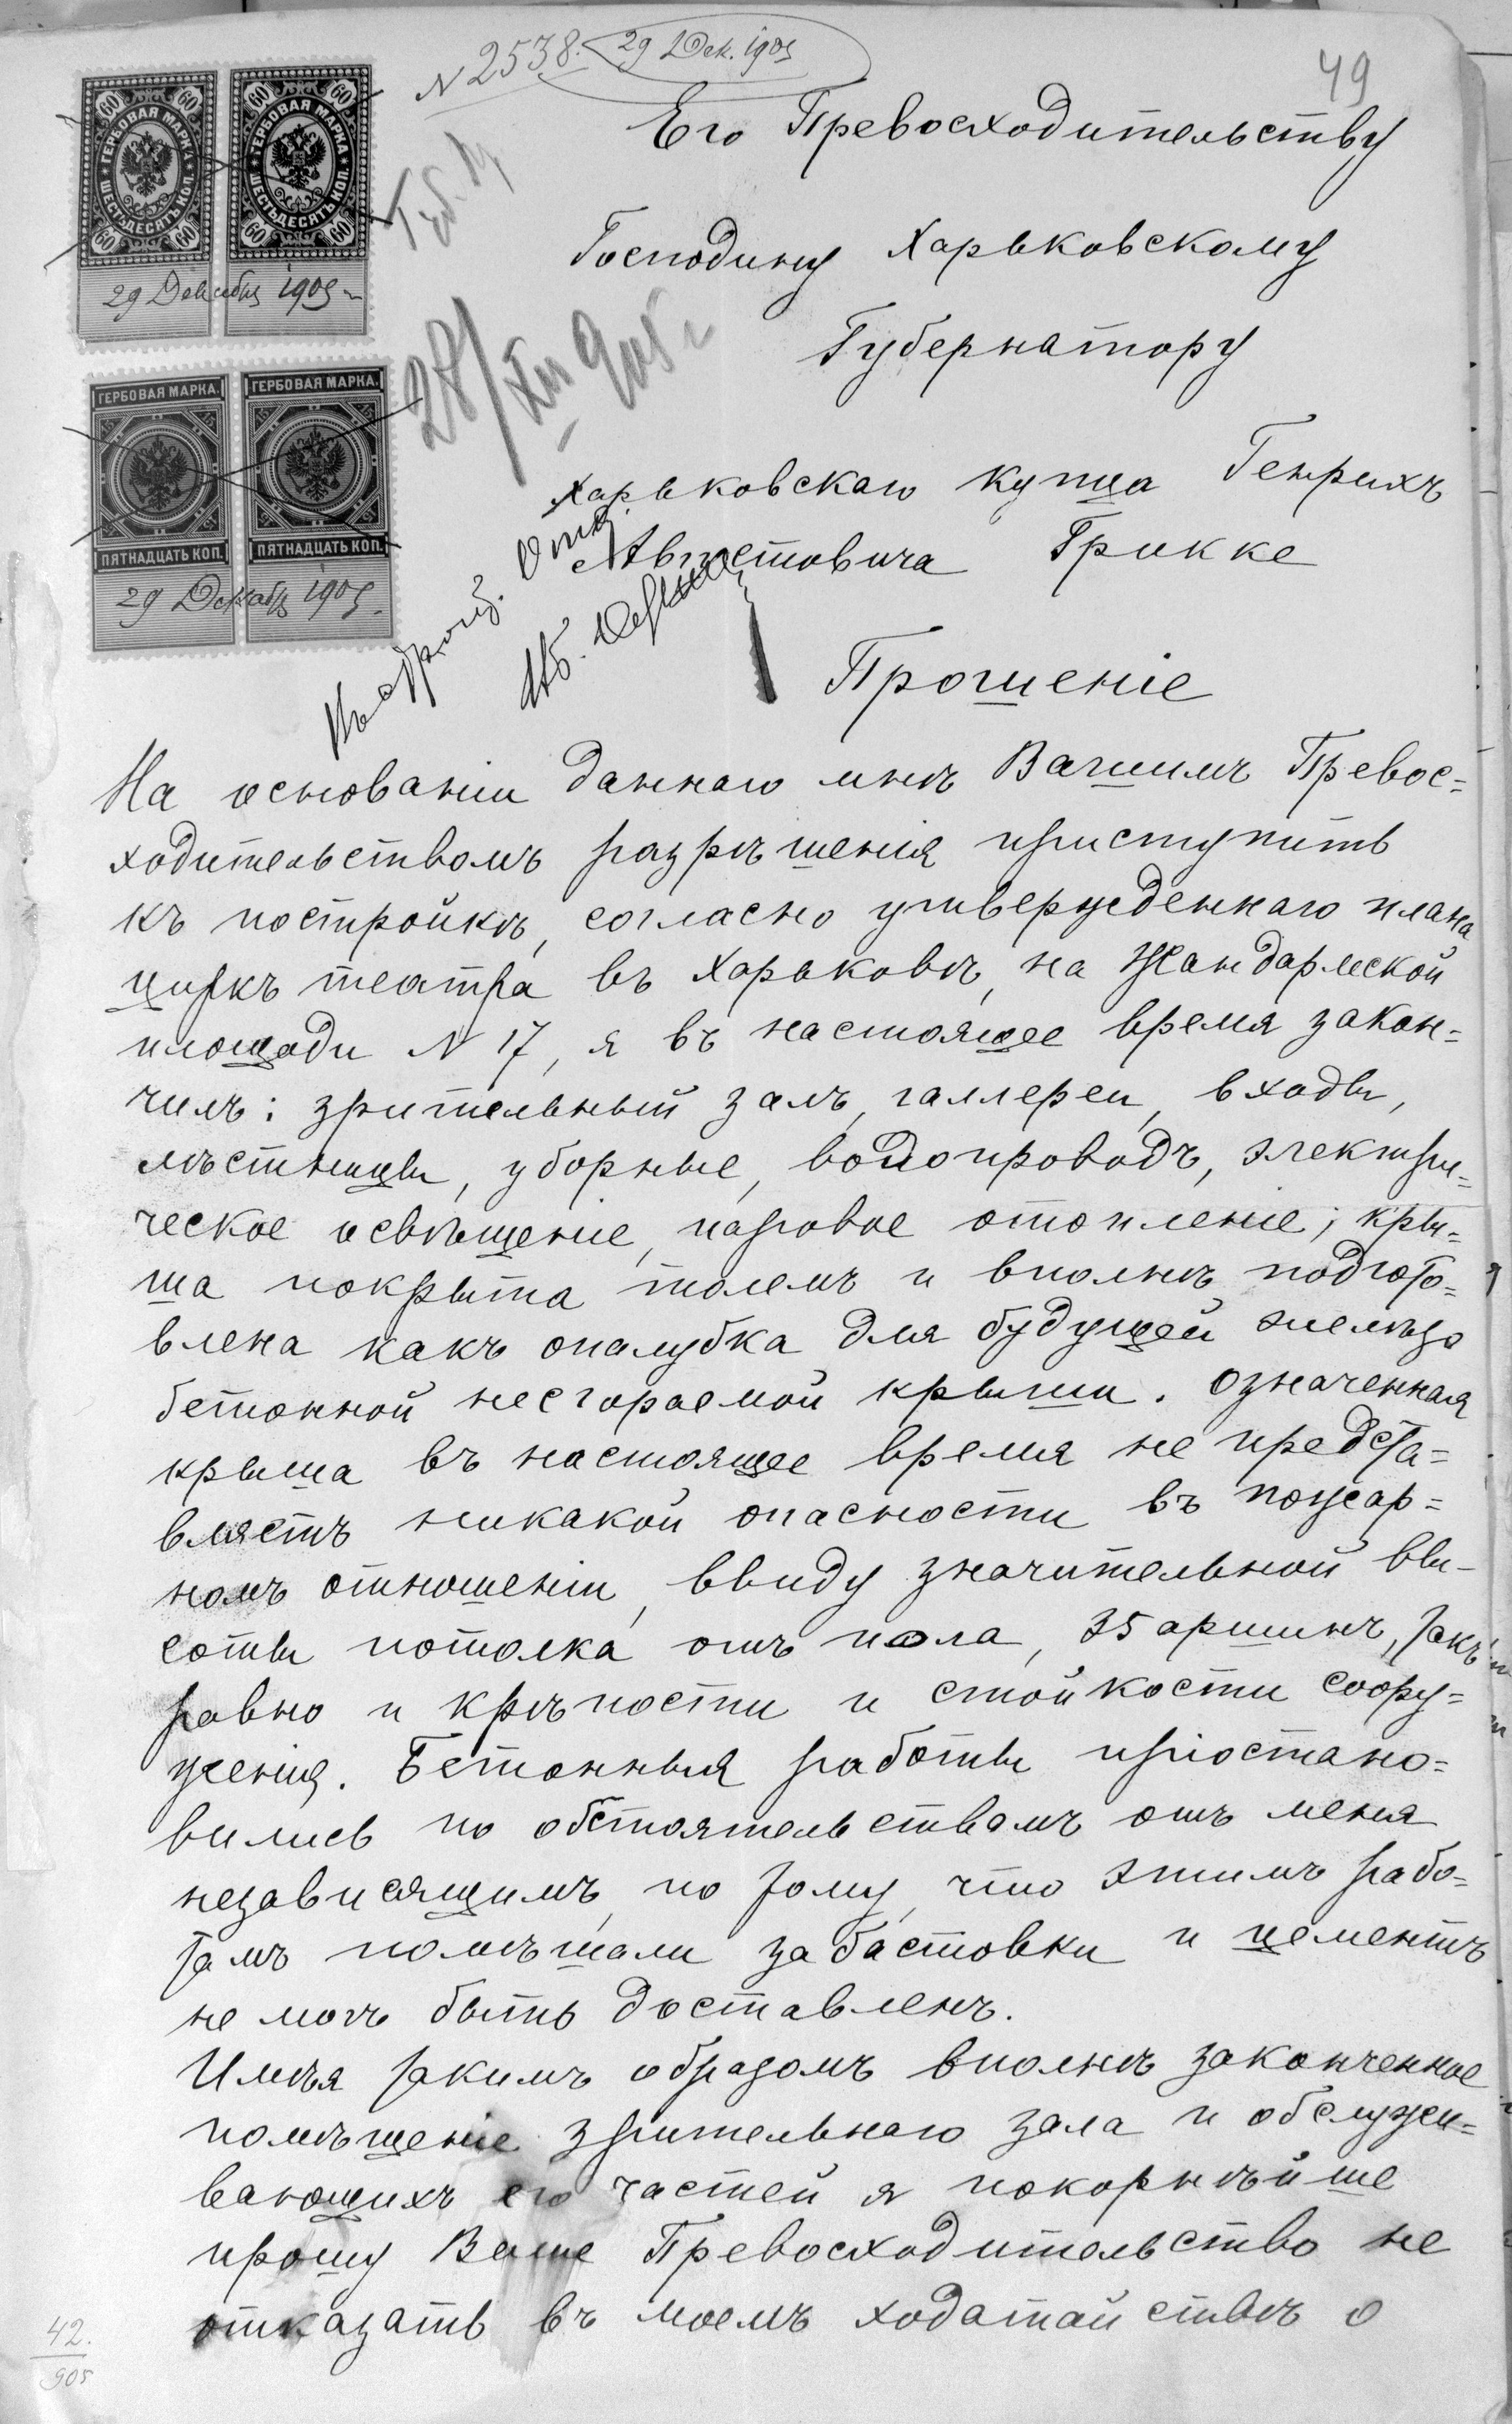 N 2538. 29 Дек. 1905
49
ГЕРБОВАЯ МАРКА ШЕСТЬДЕСЯТЪ КОП. 60 60 60 60
ГЕРБОВАЯ МАРКА ШЕСТЬДЕСЯТЪ КОП. 60 60 60 60
29 Декабря 1905 г
ГЕРБОВАЯ МАРКА. ГЕРБОВАЯ МАРКА.
ПЯТНАДЦАТЬ КОП. ПЯТНАДЦАТЬ КОП.
29 Декабр 1905.
28/XII 905 г
Его Превосходительству
Господину Харьковскому
Губернатору
Харьковскаго купца Генрихъ
Августовича Грикке
Прошеніе
На основаніи даннаго мнѣ Вашимъ Превос=
ходительствомъ разрѣшенія приступить
къ постройкѣ, согласно утвержденнаго плана
циркъ театра въ Харьковѣ, на Жандармской
площади N 17, я въ настоящее время закон=
чилъ: зрительный залъ, галлереи, входы,
лѣстницы, уборные, водопроводъ, электри=
ческое освѣщеніе, паровое отопленіе; кры=
ша покрыта толемъ и вполнѣ подгото=
влена какъ опалубка для будущей желѣзо
бетонной несгораемой крыши. Означенная
крыша въ настоящее время не предста=
вляетъ никакой опасности въ пожар=
номъ отношеніи, ввиду значительной вы-
соты потолка отъ пола, 35 аршинъ, такъ
равно и крѣпости и стойкости соору=
женія. Бетонныя работы пріостано=
вились по обстоятельствамъ отъ меня
независящимъ, по тому, что этимъ рабо=
тамъ помѣшали забастовки и цементъ
не могъ быть доставленъ.
Имѣя такимъ образомъ вполнѣ законченное
помѣщеніе зрительнаго зала и обслужи=
вающихъ его частей я покорнѣйше
прошу Ваше Превосходительство не
отказать въ моемъ ходатайствѣ о
42.
905